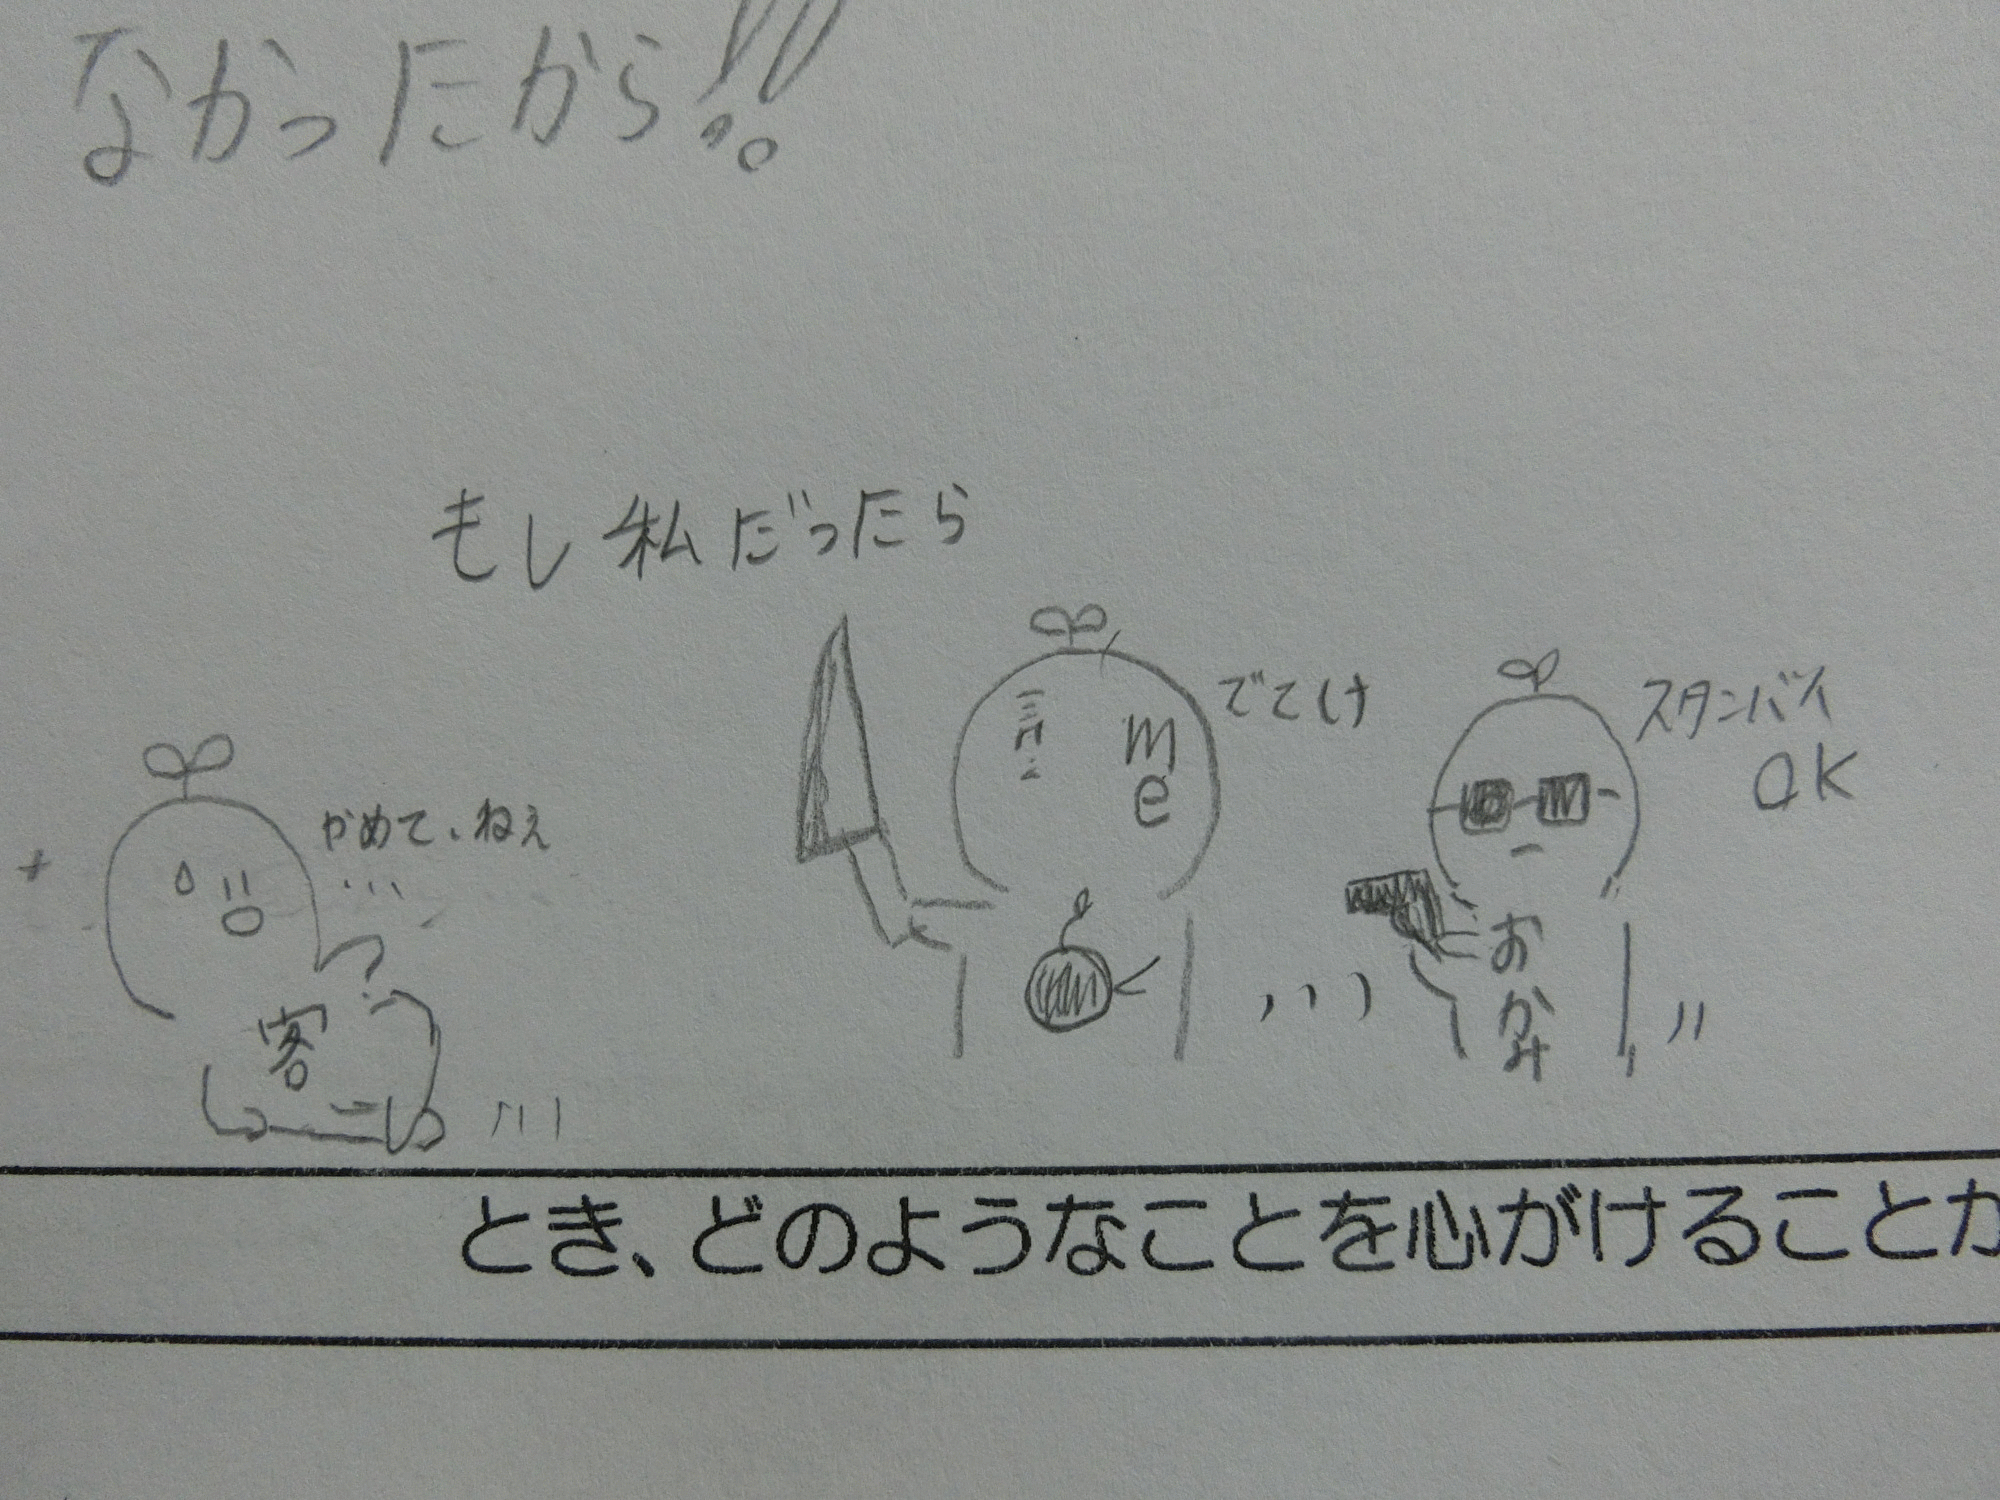 なかったから!!
もし私だったら
でてけ
me
スタンバイ
OK
やめて、ねぇ
...
おかみ
客
とき、どのようなことを心がけることが